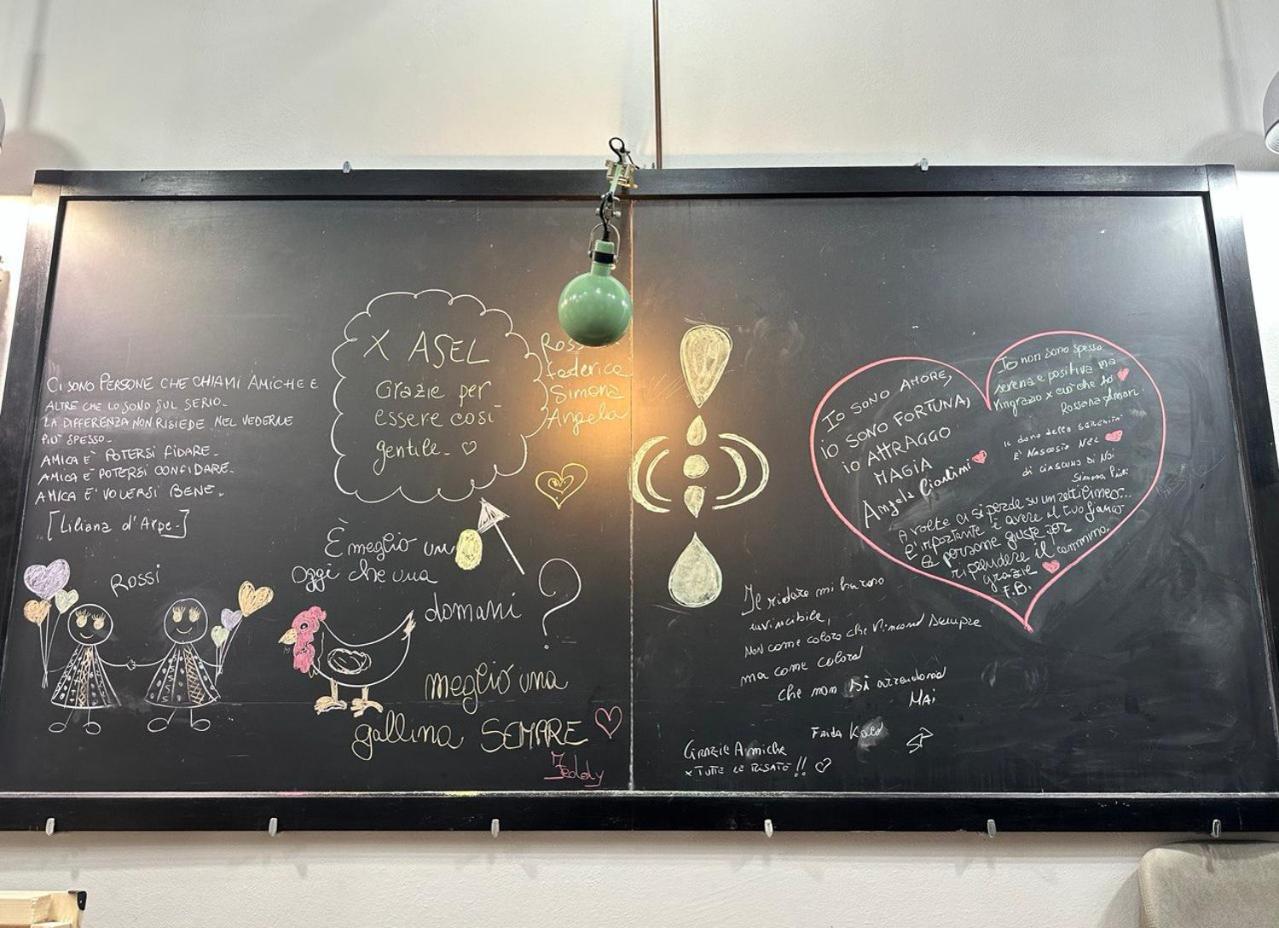 CI SONO PERSONE CHE CHIAMI AMICHE E
ALTRE CHE LO SONO SUL SERIO.
LA DIFFERENZA NON RISIEDE NEL VEDERLE
PIÙ SPESSO.
AMICA È POTERSI FIDARE.
AMICA È POTERSI CONFIDARE.
AMICA E' VOLERSI BENE.
[Liliana d'Arpe]
ROSSI
X ASEL
Grazie per
essere così
gentile. ♡
Ross
Federica
Simona
Angela
È meglio un
oggi che una
domani
?
meglio una
gallina SEMPRE
Teddy
IO SONO AMORE,
IO SONO FORTUNA,
IO ATTRAGGO
MAGIA
Angela
Io non sono spesso
serena e positiva ma
ringrazio x ciò che ho
Rossana
il dono della
È NASCOSTO NEL
di ciascuno di Noi
Simona
A volte ci si perde su un
È importante è avere al tuo fianco
le persone giuste per
riprendere il cammino.
grazie
F.B.
Il ridere mi ha reso
invincibile,
NON come coloro che vincono sempre
ma come coloro
che non si arrendono
MAI
Frida Kalo
GRAZIE Amiche
x TUTTE LE RISATE!! ♡